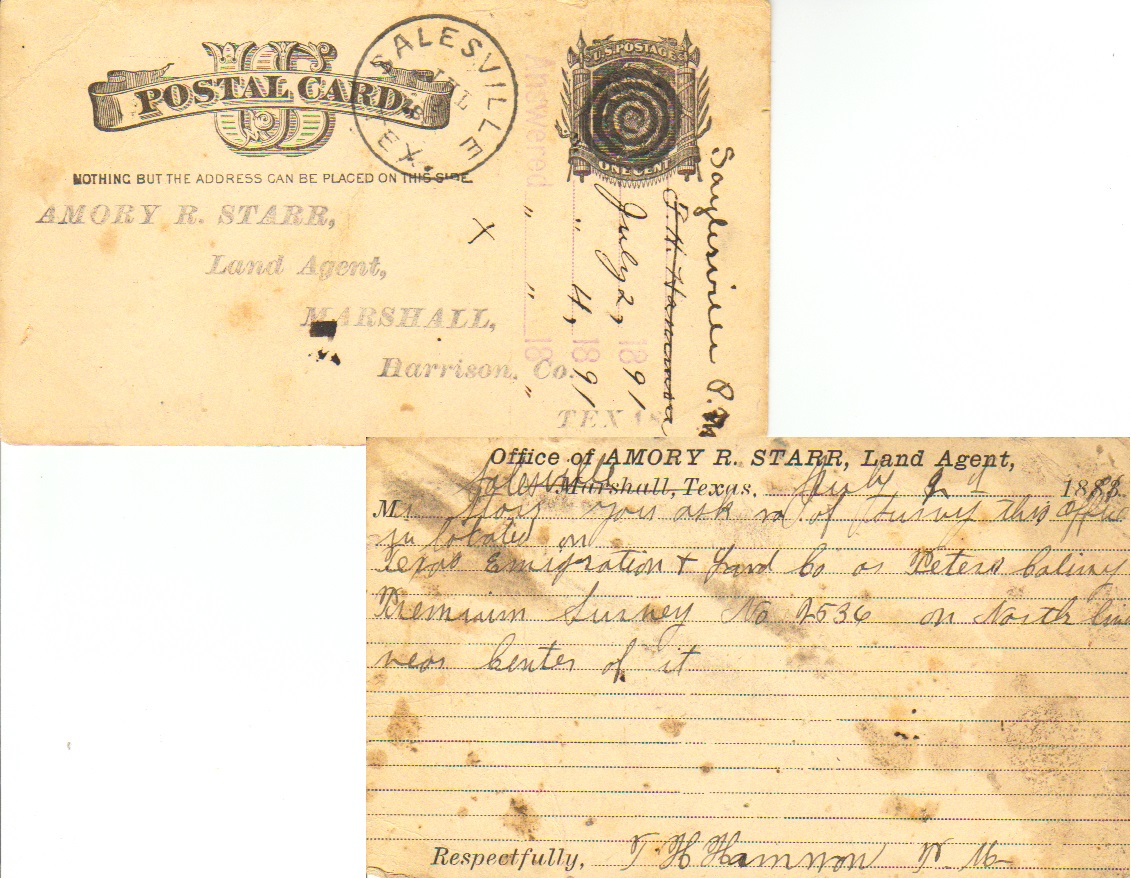 US
POSTAL CARD
NOTHING BUT THE ADDRESS CAN BE PLACED ON THIS SIDE.
SALESVILLE
TEX.
JUL
U.S. POSTAGE
ONE CENT
AMORY R. STARR,
Land Agent,
MARSHALL,
Harrison, Co.
TEXAS
X
Answered " " " 18
" 4, 1891
July 2, 1891
T. H. Hammon
P.M
Office of AMORY R. STARR, Land Agent,
Salesville
Marshall, Texas, July 2d 188
Mr Starr you ask no of Survey this office
is located on
Texas Emigration & Land Co or Peters Colony
Premium Survey No 2536 on North line
near Center of it
Respectfully, T H Hammon P M